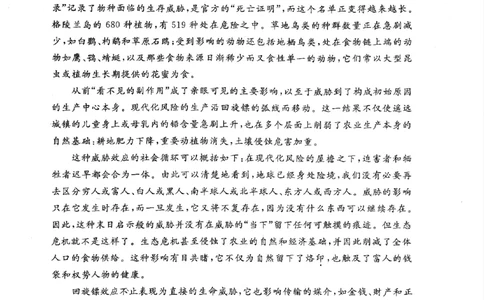 录”记录了物种面临的生存威胁,是官方的“死亡证明”,而这个名单正变得越来越长。
格陵兰岛的 680 种植物,有 519 种处在危险之中。草地鸟类的种群数量正在急剧减
少,如白鹳、杓鹬和草原石䳭;受到影响的动物还包括地栖鸟类,处在食物链上端的动
物如鹰、鸮、蜻蜓,以及那些食物来源日渐稀少而又食性单一的动物,它们常以大型昆
虫或植物生长期提供的花蜜为食。
从前“看不见的副作用”成了亲眼可见的主要影响,以至于威胁到了构成初始原因
的生产中心本身。现代化风险的生产沿回旋镖的弧线而移动。这一结果不仅使遥远
城镇的儿童身上或母乳内的铅含量急剧上升,也在多个层面上削弱了农业生产本身的
自然基础:耕地肥力下降,重要动植物消失,土壤侵蚀危害加重。
这种威胁效应的社会循环可以概括如下:在现代化风险的屋檐之下,迫害者和牺
牲者迟早都会合为一体。由此可以清楚地看到,地球已经身处险境,我们没有必要再
去区分穷人或富人、白人或黑人、南半球人或北半球人、东方人或西方人。威胁的影响
只在它发生时存在,而一旦发生,它又将不复存在,因为没有什么东西可以继续存在。
因此,这种末日启示般的威胁并没有在威胁的“当下”留下任何可触摸的痕迹。但生态
危机就不是这样了。生态危机甚至侵蚀了农业的自然和经济基础,并因此削减了全体
人口的食物供给。这种影响有目共睹,它不仅为自然留下了烙印,也触及了富人的钱
袋和权势人物的健康。
回旋镖效应不止表现为直接的生命威胁,它也影响传输的媒介,如金钱、财产和正